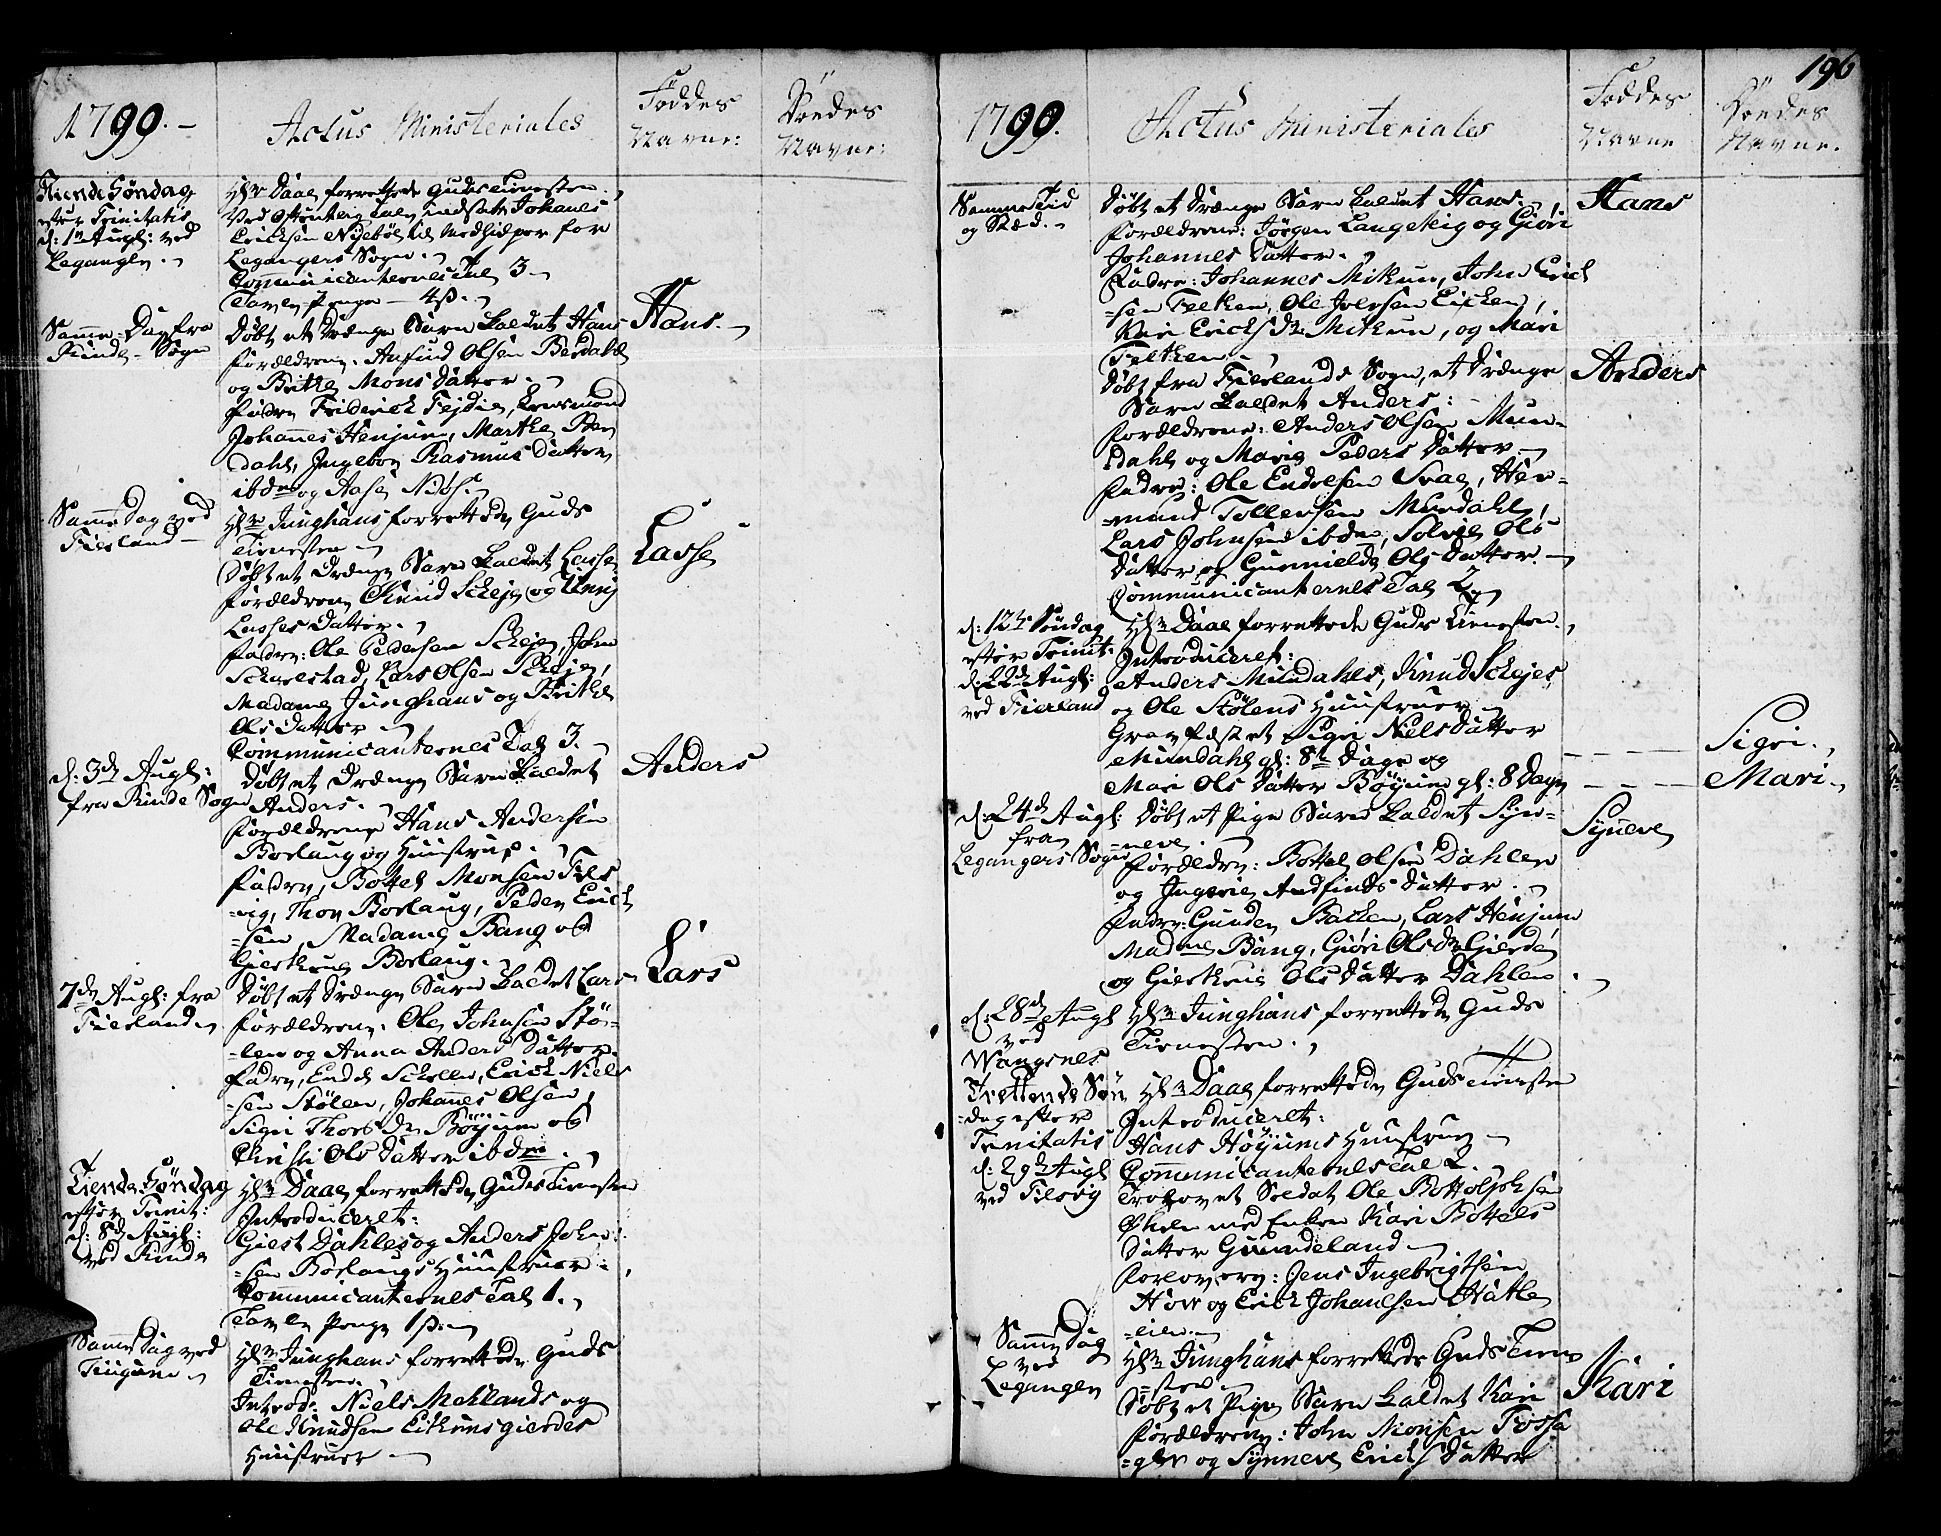 1799.
Actus Ministeriales
Föddes Navne:
Döedes Navne:
Niende Söndag
efter Trinitatis
d: 1n Augl: ved
Leganger.
Hr. Daae forrettede Guds Tienesten.
Ved Ottenberg blev indsat Johanes
Ericksen Nybøe til Medhielper for
Legangers Sogn.
Communicanternes Tal 3.
Tavle-Penge – 4ß.
Samme Dag fra
Rinde-Sogn
Døbt et Drænge Barn kaldet Hans
Forældrene. Anfind Olsen Berdahl
og Brithe Mons Datter.
Fadre Friderich Fejdie, Lensmand
Johannes Henjum, Marthe Ber
dahl, Ingebor Rasmus Datter
ibdm og Aase Niøs.
Hans.
Samme Dag ved
Fierland
Hr. Junghans forrettede Guds
Tienesten
Døbt et Drænge Barn kaldet Lasse
Forældrene Knud Scheje og Unni
Lasses Datter.
Fadre: Ole Pedersen Scheje, John
Scharestad, Lars Olsen Scheje,
Madame Junghans og Brithe
Ols Datter
Communicanternes Tal 3.
Lasse
d: 3de Augl:
fra Rinde Sogn
Døbt et Drænge Barn kaldet
Anders.
Forældrene Hans Andersen
Borlaug og Huustrue.
Fadre, Bottel Monsen Fies
-vig, Thor Borlaug, Peder Erick
-sen, Madame Bang og
Gierthrue Borlaug.
Anders
7de Augl: fra
Fierland
Døbt et Drænge Barn kaldet Lars
Forældrene. Ole Johnsen Stö-
-len og Anna Anders Datter.
Fadre, Endt Schellei, Erick Niels
-sen Stölen, Johannes Olsen,
Sigri Thors Dr Böyum og
Christi Ols Datter ibdm.
Lars
Tiende Söndag
efter Trinit:
d: 8de Augl:
ved Rinde
Hr. Daae forrettede Guds Tienesten
Introduceret:
Giest Dahles og Anders John-
-sen Borlaugs Huustruer.
Communicanternes Tal 1.
Tavle Penge 1ß.
Samme Dag ved
Tiugum
Hr. Junghans forrettede Guds
Tienesten.
Introd: Niels Mehlands og
Ole Knudsen Eitrumsgierdes
Huustruer
196
1799.
Actus Ministeriales
Föddes Navne
Döedes Navne.
Samme Tid
og Stæd.
Døbt et Drænge Barn kaldet Hans.
Forældrene: Jörgen Langeteig og Giöri
Johannes Datter.
Fadre: Johannes Mitkun, John Erick
-sen Feltken, Ole Joensen Eicken,
Kari Erichs Dr. Mitkun, og Mari
Feltken.
Hans
Døbt fra Fierlands Sogn, et Drænge
Barn kaldet Anders:
Forældrene: Anders Olsen Mun-
dahl og Marie Peders Datter
Fadre: Ole Endresen Svae, Her-
-mund Tollersen Mundahl,
Lars Johnsen ibdm, Solvie Ols
Datter og Gunnielde Ols Datter.
Communicanternes Tal 2.
Anders
d: 12te Söndag
efter Trinit:
d: 22de Augl:
ved Fierland
Hr. Daae forrettede Guds Tienesten.
Introduceret:
Anders Mundahls, Knud Schejes,
og Ole Stölens Huustruer
Gravfæstet Sigri Niels Datter
Mundahl gl: 8te Dage og
Mari Ols Datter Böyum gl: 8 Dage
Sigri.
Mari.
d: 24de Augl:
fra
Legangers Sogn
Døbt et Pige Barn kaldet Syn-
-neve.
Forældre: Bottel Olsen Dahlen
og Ingerie Andfinds Datter.
Fadre: Gunder Backen, Lars Henjum
Madme Bang, Giöri Ols Dr Gierde
og Gierthrue Ols Datter Dahlen.
Syneve
d: 28de Augl
ved
Wangsnes
Hr. Junghans forrettede Guds
Tienesten.
Trettende Sön
-dag efter
Trinitatis
d: 29de Augl
ved Fiesvig
Hr. Daae forrettede Guds Tieneste
Introduceret:
Hans Höyums Huustrue
Communicanternes Tal 2.
Trolovet Soldat Ole Bottolphsen
med Enken Kari Bottels
Datter Gundeland
Forlovere: Jens Ingebrigtsen
How og Erick Johansen Hatle
-lien.
Samme Dag
ved
Leganger
Hr. Junghans forrettede Guds Tiene
-sten
Døbt et Pige Barn kaldet Kari
Forældrene: John Monsen Fossa
-gler og Synneve Erichs Datter
Kari